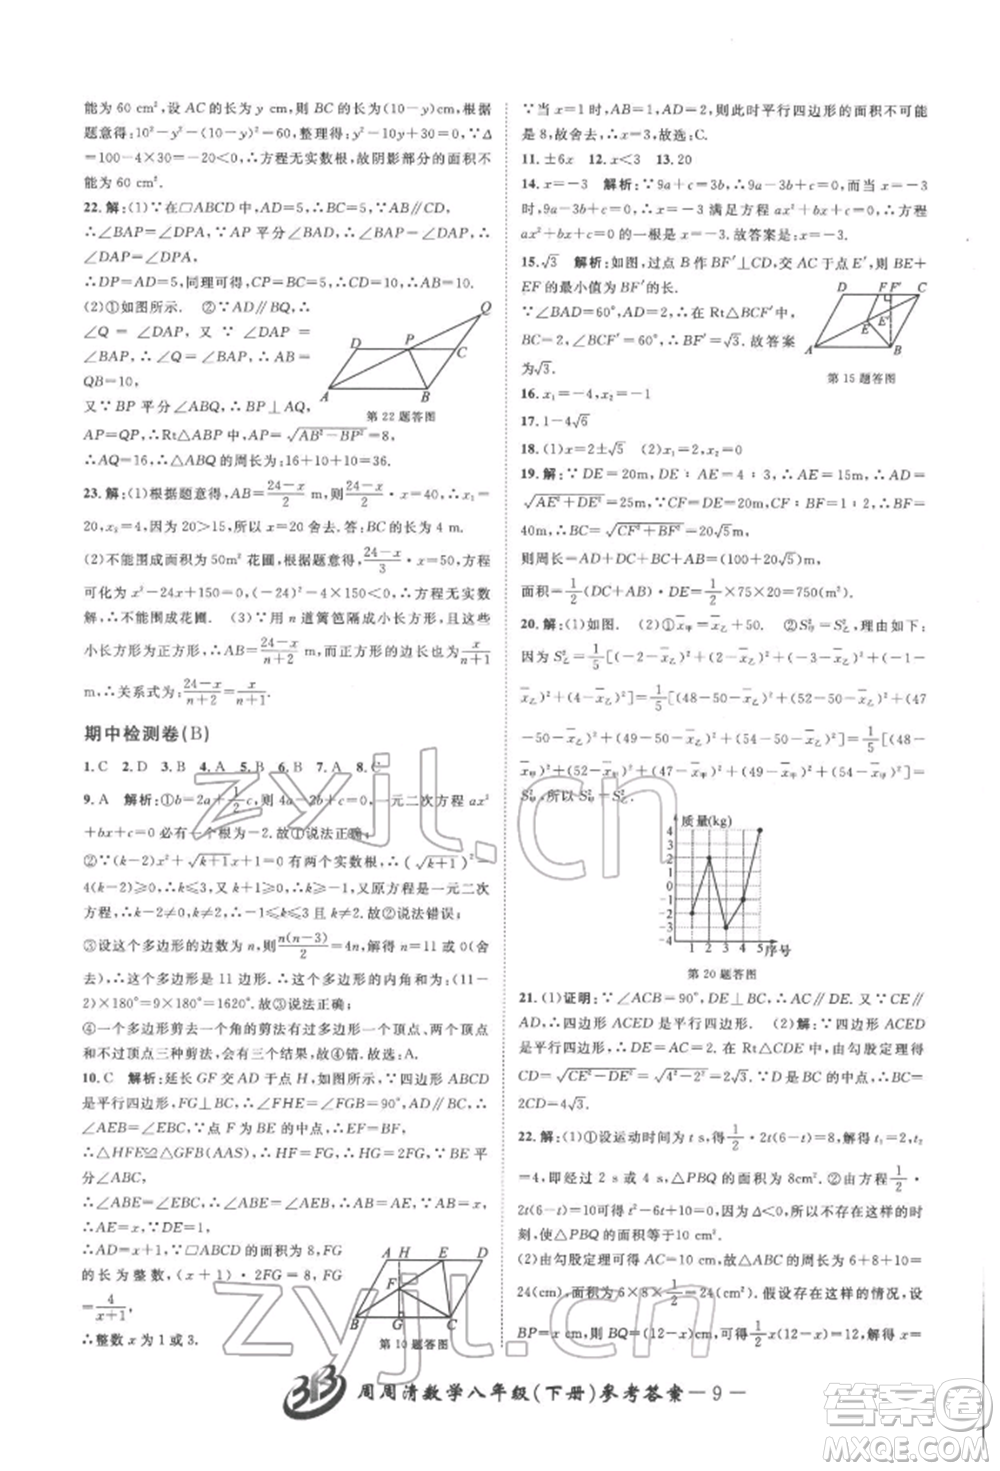 能为60 cm²,设 AC 的长为 y cm,则 BC 的长为(10-y)cm,根据
题意得:10²-y²-(10-y)²=60,整理得:y²-10y+30=0,∵Δ
=100-4×30=-20<0,∴方程无实数根,故阴影部分的面积不可
能为 60 cm².
22.解:(1)∵在□ABCD 中,AD=5,∴BC=AD=5,AB∥CD,
∴∠BAP=∠DPA,∵AP 平分∠BAD,∴∠BAP=∠DAP,∴
∠DAP=∠DPA,
∴DP=AD=5,同理可得,CP=BC=5,∴AB=CD=10.
(2)①如图所示. ②∵AD∥BQ,∴
∠Q=∠DAP,又∵∠DAP=
∠BAP,∴∠Q=∠BAP,∴AB=
QB=10,
又∵BP 平分∠ABQ,∴BP⊥AQ,
AP=QP,∴Rt△ABP 中,AP=√AB²-BP²=8,
∴AQ=16,∴△ABQ 的周长为:16+10+10=36.
D P C Q A B
第 22 题答图
23.解:(1)根据题意得,AB=(24-x)/2 m,则(24-x)/2·x=40,∴x₁=
20,x₂=4,因为 20>15,所以 x=20 舍去.答:BC 的长为 4 m.
(2)不能围成面积为50m² 花圃,根据题意得,(24-x)/3·x=50,方程
可化为 x²-24x+150=0,(-24)²-4×150<0,∴方程无实数解,
∴不能围成花圃. (3)∵用 n 道篱笆隔成小长方形,且这些小
小长方形为正方形,∴AB=(24-x)/(n+2),而正方形的边长也为x/(n+1)
m,∴关系式为:(24-x)/(n+2)=x/(n+1).
期中检测卷(B)
1.C 2.D 3.B 4.A 5.B 6.B 7.A 8.C
9.A 解析:①b=2a+½c,则 4a-2b+c=0,一元二次方程 ax²
+bx+c=0 必有一个根为-2.故①说法正确.
②∵(k-2)x²+√k+1x=0有两个实数根,∴(√k+1)²-
4(k-2)≥0,∴k≤3,∴-1≤k≤3,又∵原方程是一元二次
方程,∴k≠2,∴-1≤k≤3 且 k≠2.故②说法错误;
③设这个多边形的边数为 n,则n(n-3)/2=4n,解得 n=11 或 0(舍
去),∴这个多边形是 11 边形.∴这个多边形的内角和为(11-
2)×180°=9×180°=1620°.故③说法正确;
④一个多边形剪去一个角的剪法有过多边形一个顶点、两个顶点
和不过顶点三种剪法,会有三个结果.故④错.故选:A.
10.C 解析:延长 GF 交 AD 于点 H,如图,∵四边形 ABCD
是平行四边形,FG⊥BC,∴∠FHE=∠FGB=90°,AD∥BC,∴
∠AEB=∠EBC,∵点 F 为 BE 中点,∴BF=EF,
∴△HFE≌△GFB(AAS),∴HF=GF,∵BE 平分∠ABC,
∴∠AEB=∠ABE,∴AB=AE,∵AB=x,∴
AE=x,
∴AD=x+1,∵平行四边形 ABCD
的长为整数,(x+1)·2FG=8,∴FG
=4/(x+1),
∴整数 x 为 1 或 3.
A H E D F B G C
第 10 题答图
∵当 x=1 时,AB=1,AD=2,则此时平行四边形的面积不可能
是 8,故舍去,∴x=3,故选:C.
11.±6x 12.x<3 13.20
14.x=-3 解析:∵9a+c=3b,∴9a-3b+c=0,∵当 x=-3
时,9a-3b+c=0,∴x=-3 满足方程 ax²+bx+c=0,∴方程
ax²+bx+c=0 的一根是 x=-3.故答案是:x=-3.
15.√3 解析:如图,过点 B 作 BF′⊥CD,交 AC 于点 E′,则 BE+
EF 的最小值为 BF′的长.
∵∠BAD=60°,AD=2,∴在 Rt△BCF′中,
BC=2,∠BCF′=60°,∴BF′=√3.故答案
为√3.
D F F′ C E E′ A B
第 15 题答图
16.x₁=-4,x₂=-1
17.1-4√6
18.(1)x=2±√5 (2)x₁=1,x₂=2
19.解:∵DE=20m,DE∶AE=4∶3,∴AE=15m,∴AD=
√AE²+DE²=25m,∵CF=DE=20m,CF∶BF=1∶2,∴BF=
40m,∴BC=√CF²+BF²=20√5m,
则周长=AD+DC+BC+AB=(100+20√5)m,
面积=½(AB+DC)×DE=½×75×20=750(m²).
20.解:(1)如图. (2)①x̄甲=x̄乙+50. ②S²甲=S²乙,理由如下:

质量(kg)
4 3 2 1 0 -1 -2 -3 -4
1 2 3 4 5 序号
第 20 题答图
21.(1)证明:∵∠ACB=90°,DE⊥BC,∴AC∥DE,又∵CE∥
AD,∴四边形 ACED 是平行四边形. (2)解:∵四边形 ACED
是平行四边形,∴DE=AC=2.在 Rt△CDE 中,由勾股定理得
CD=√CE²-DE²=√4²-2²=2√3.∵D 是 BC 的中点,∴BC=
2CD=4√3.
22.解:(1)①设运动时间为 t s,得½·2t(6-t)=8,解得 t₁=2,t₂
=4,即经过 2 s 或 4 s,△PBQ 的面积为 8cm². ②由题意得½·
2t(6-t)=10,得 t²-6t+10=0,因为Δ<0,所以不存在这样的时
刻,使△PBQ 的面积等于 10 cm².
(2)由勾股定理可求得 AC=10 cm,可求得△ABC 的周长为 6+8+10=
24(cm),面积为 6×8×½=24(cm²),假设存在这样的情况,设
BP=x cm,则 BQ=(12-x)cm,可得½x(12-x)=12,可得 x=
周周清数学八年级(下册)参考答案-9-
zyjl.cn
zyjl.cn
答案圈
MXQE.COM